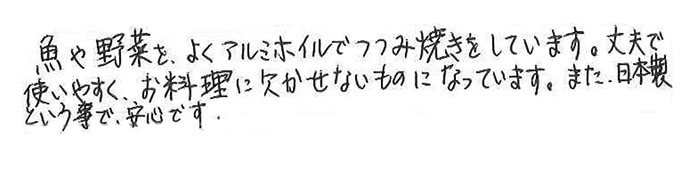 魚や野菜を、よくアルミホイルでつつみ焼きをしています。丈夫で
使いやすく、お料理に欠かせないものになっています。また、日本製
という事で、安心です.